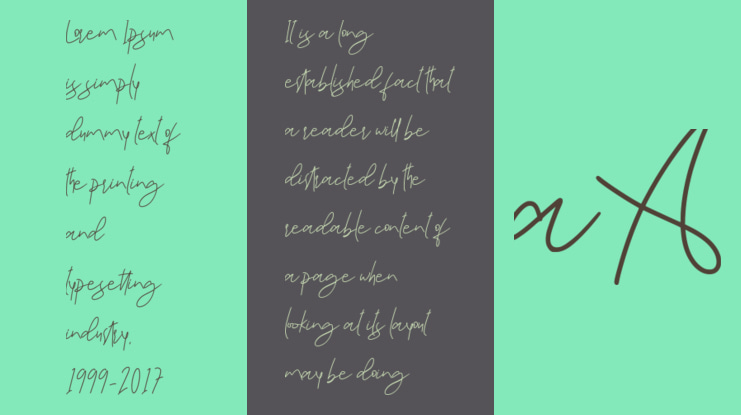 Lorem Ipsum
is simply
dummy text of
the printing
and
typesetting
industry.
1999-2017
It is a long
established fact that
a reader will be
distracted by the
readable content of
a page when
looking at its layout
may be doing
xA